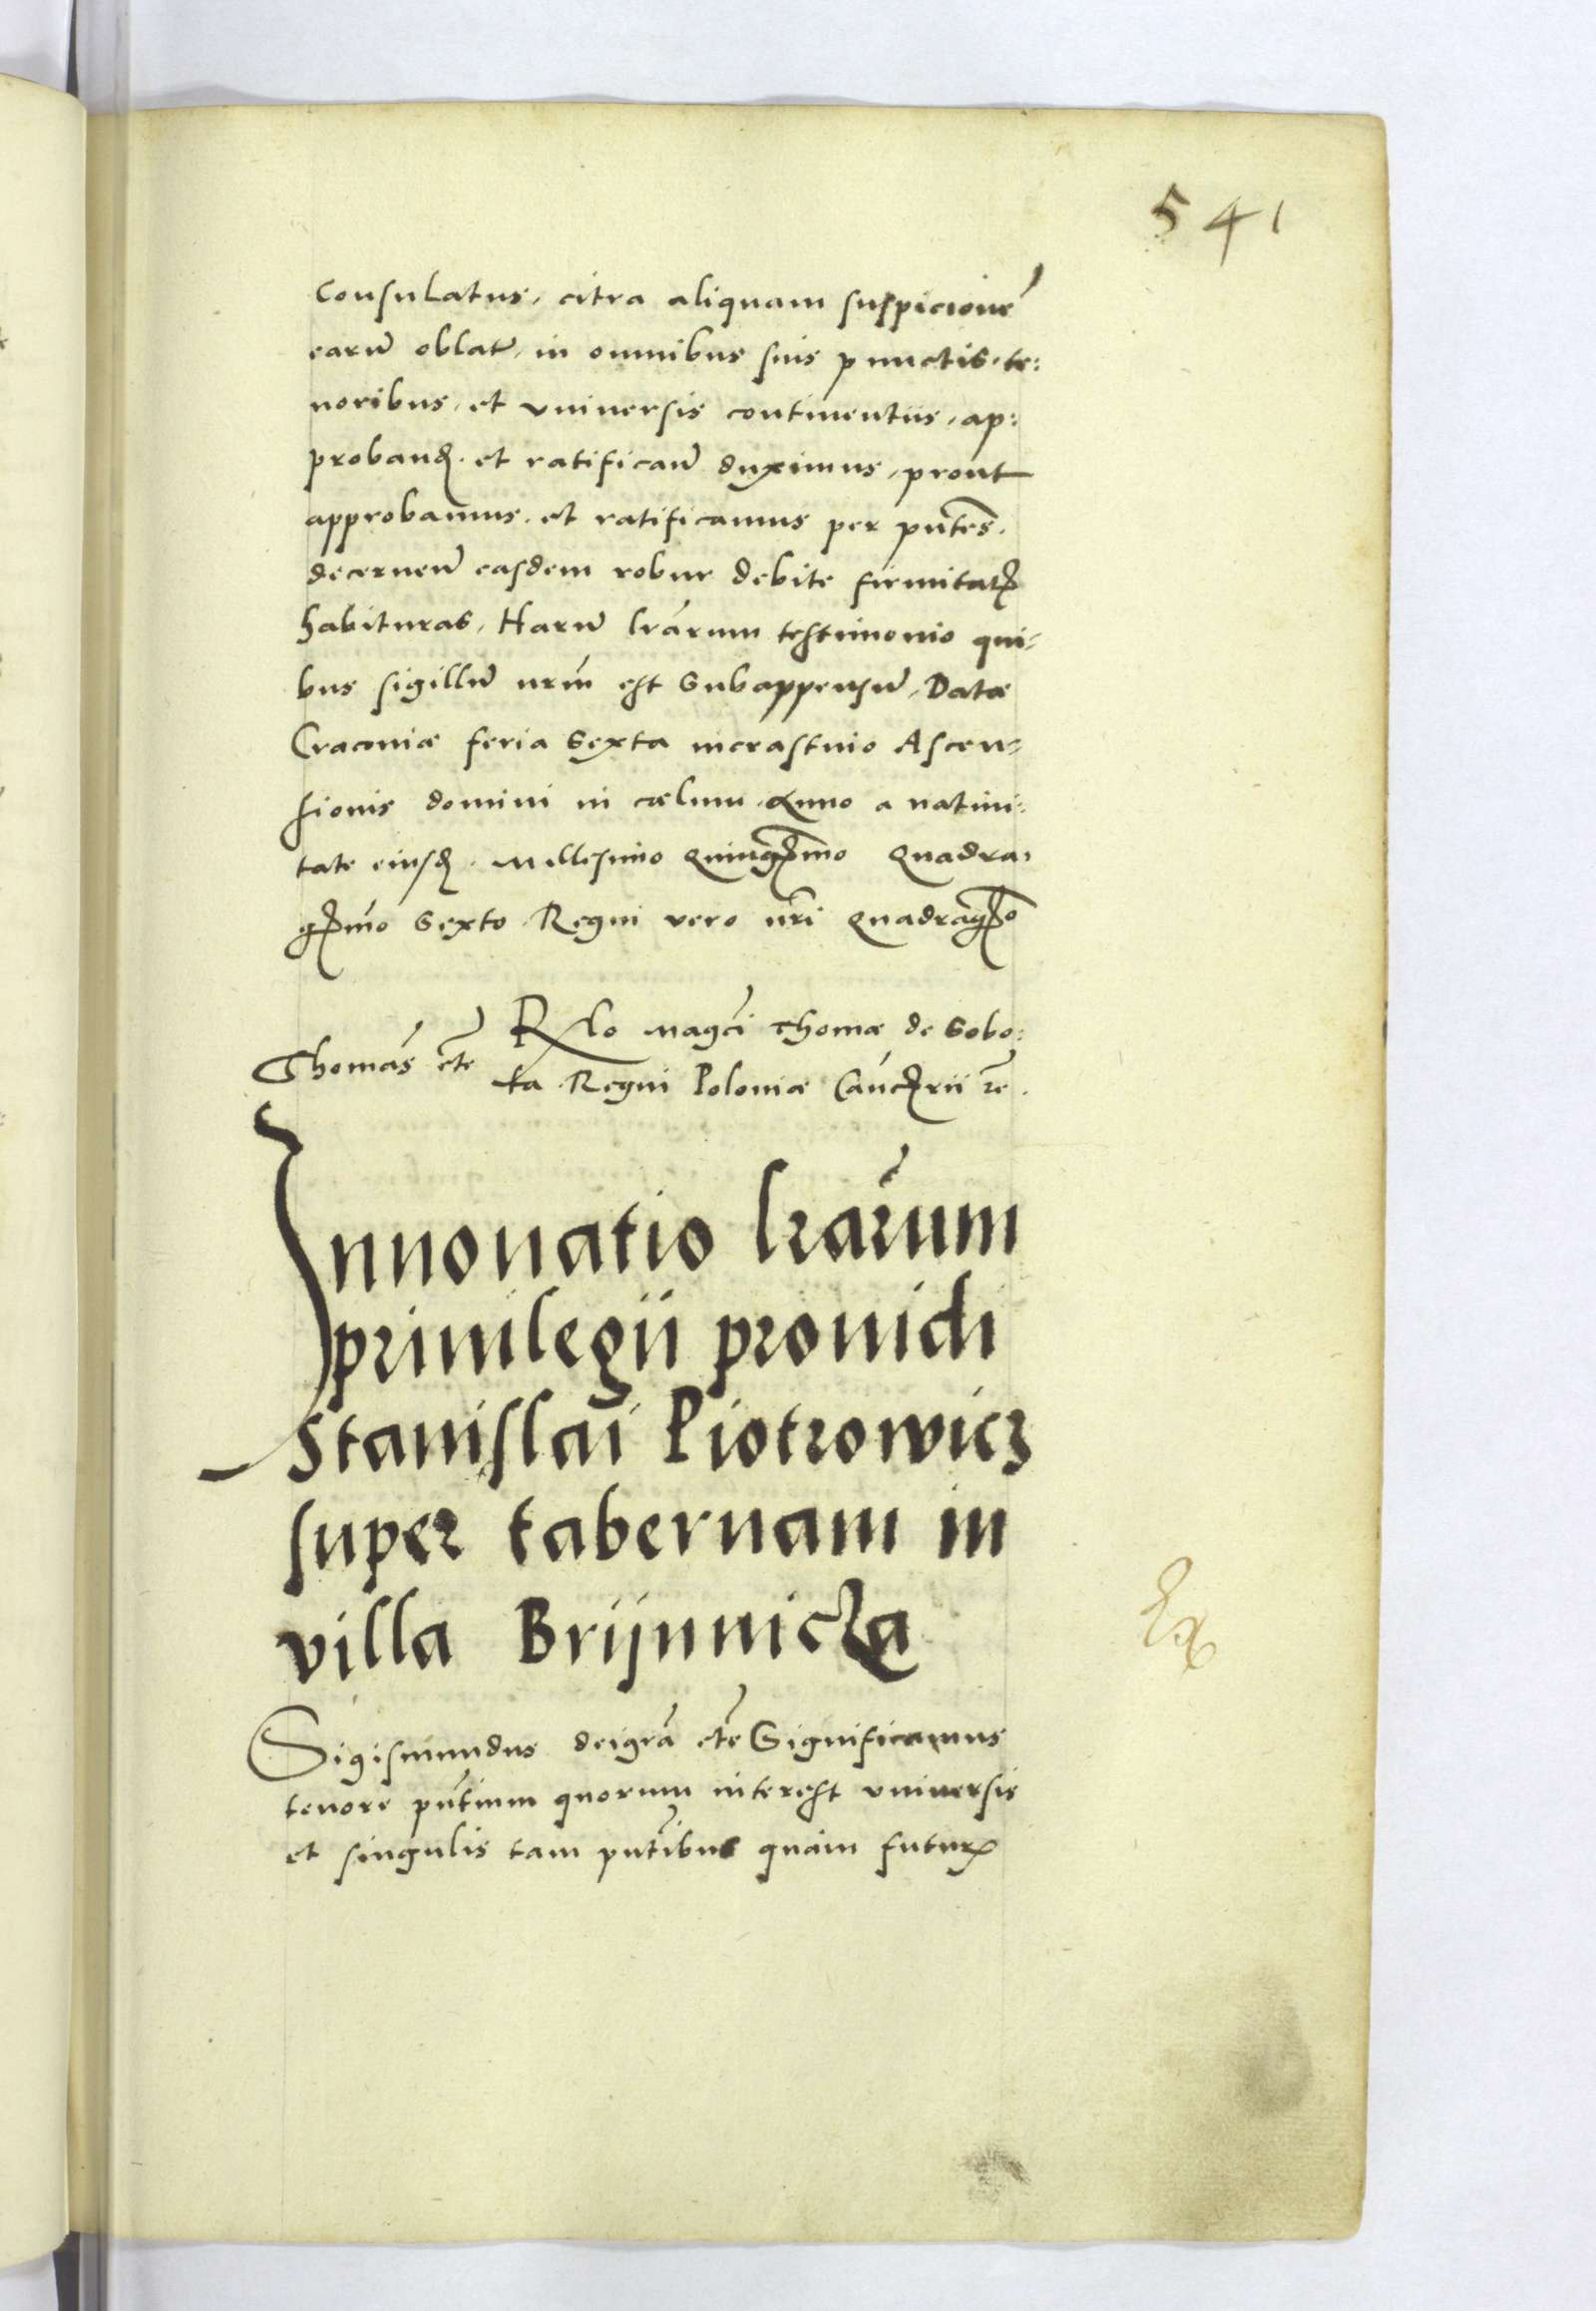 541
Consulatus, citra aliquam suspicionē
earū oblat, in omnibus suis punctis, te:
noribus, et vniuersis continentiis, ap:
proband. et ratificand duximus, prout
approbamus. et ratificamus per pntes.
decernen easdem robur debite firmitatis
habituras, Harū lrarum testimonio qui-
bus sigillū nrm est Subappensū, Datæ
Cracouiæ feria Sexta incrastino Ascen-
sionis domini in cælum, Anno a natiui:
tate eiusd. Millesimo Quingmo Quadra-
gmo Sexto Regni vero nri Quadragmo
Rlo Magci Thomæ de Sobo:
Thomas etc
ta Regni Poloniæ Cancrii re.
Innouatio lrarum
priuilegii prouidi
Stanislai Piotrowicz
super tabernam in
villa Brijnnicza
Ex
Sigismundus dei gra etc Significamus
tenore pntium quorum interest vniuersis
et singulis tam pntibus quam futuris